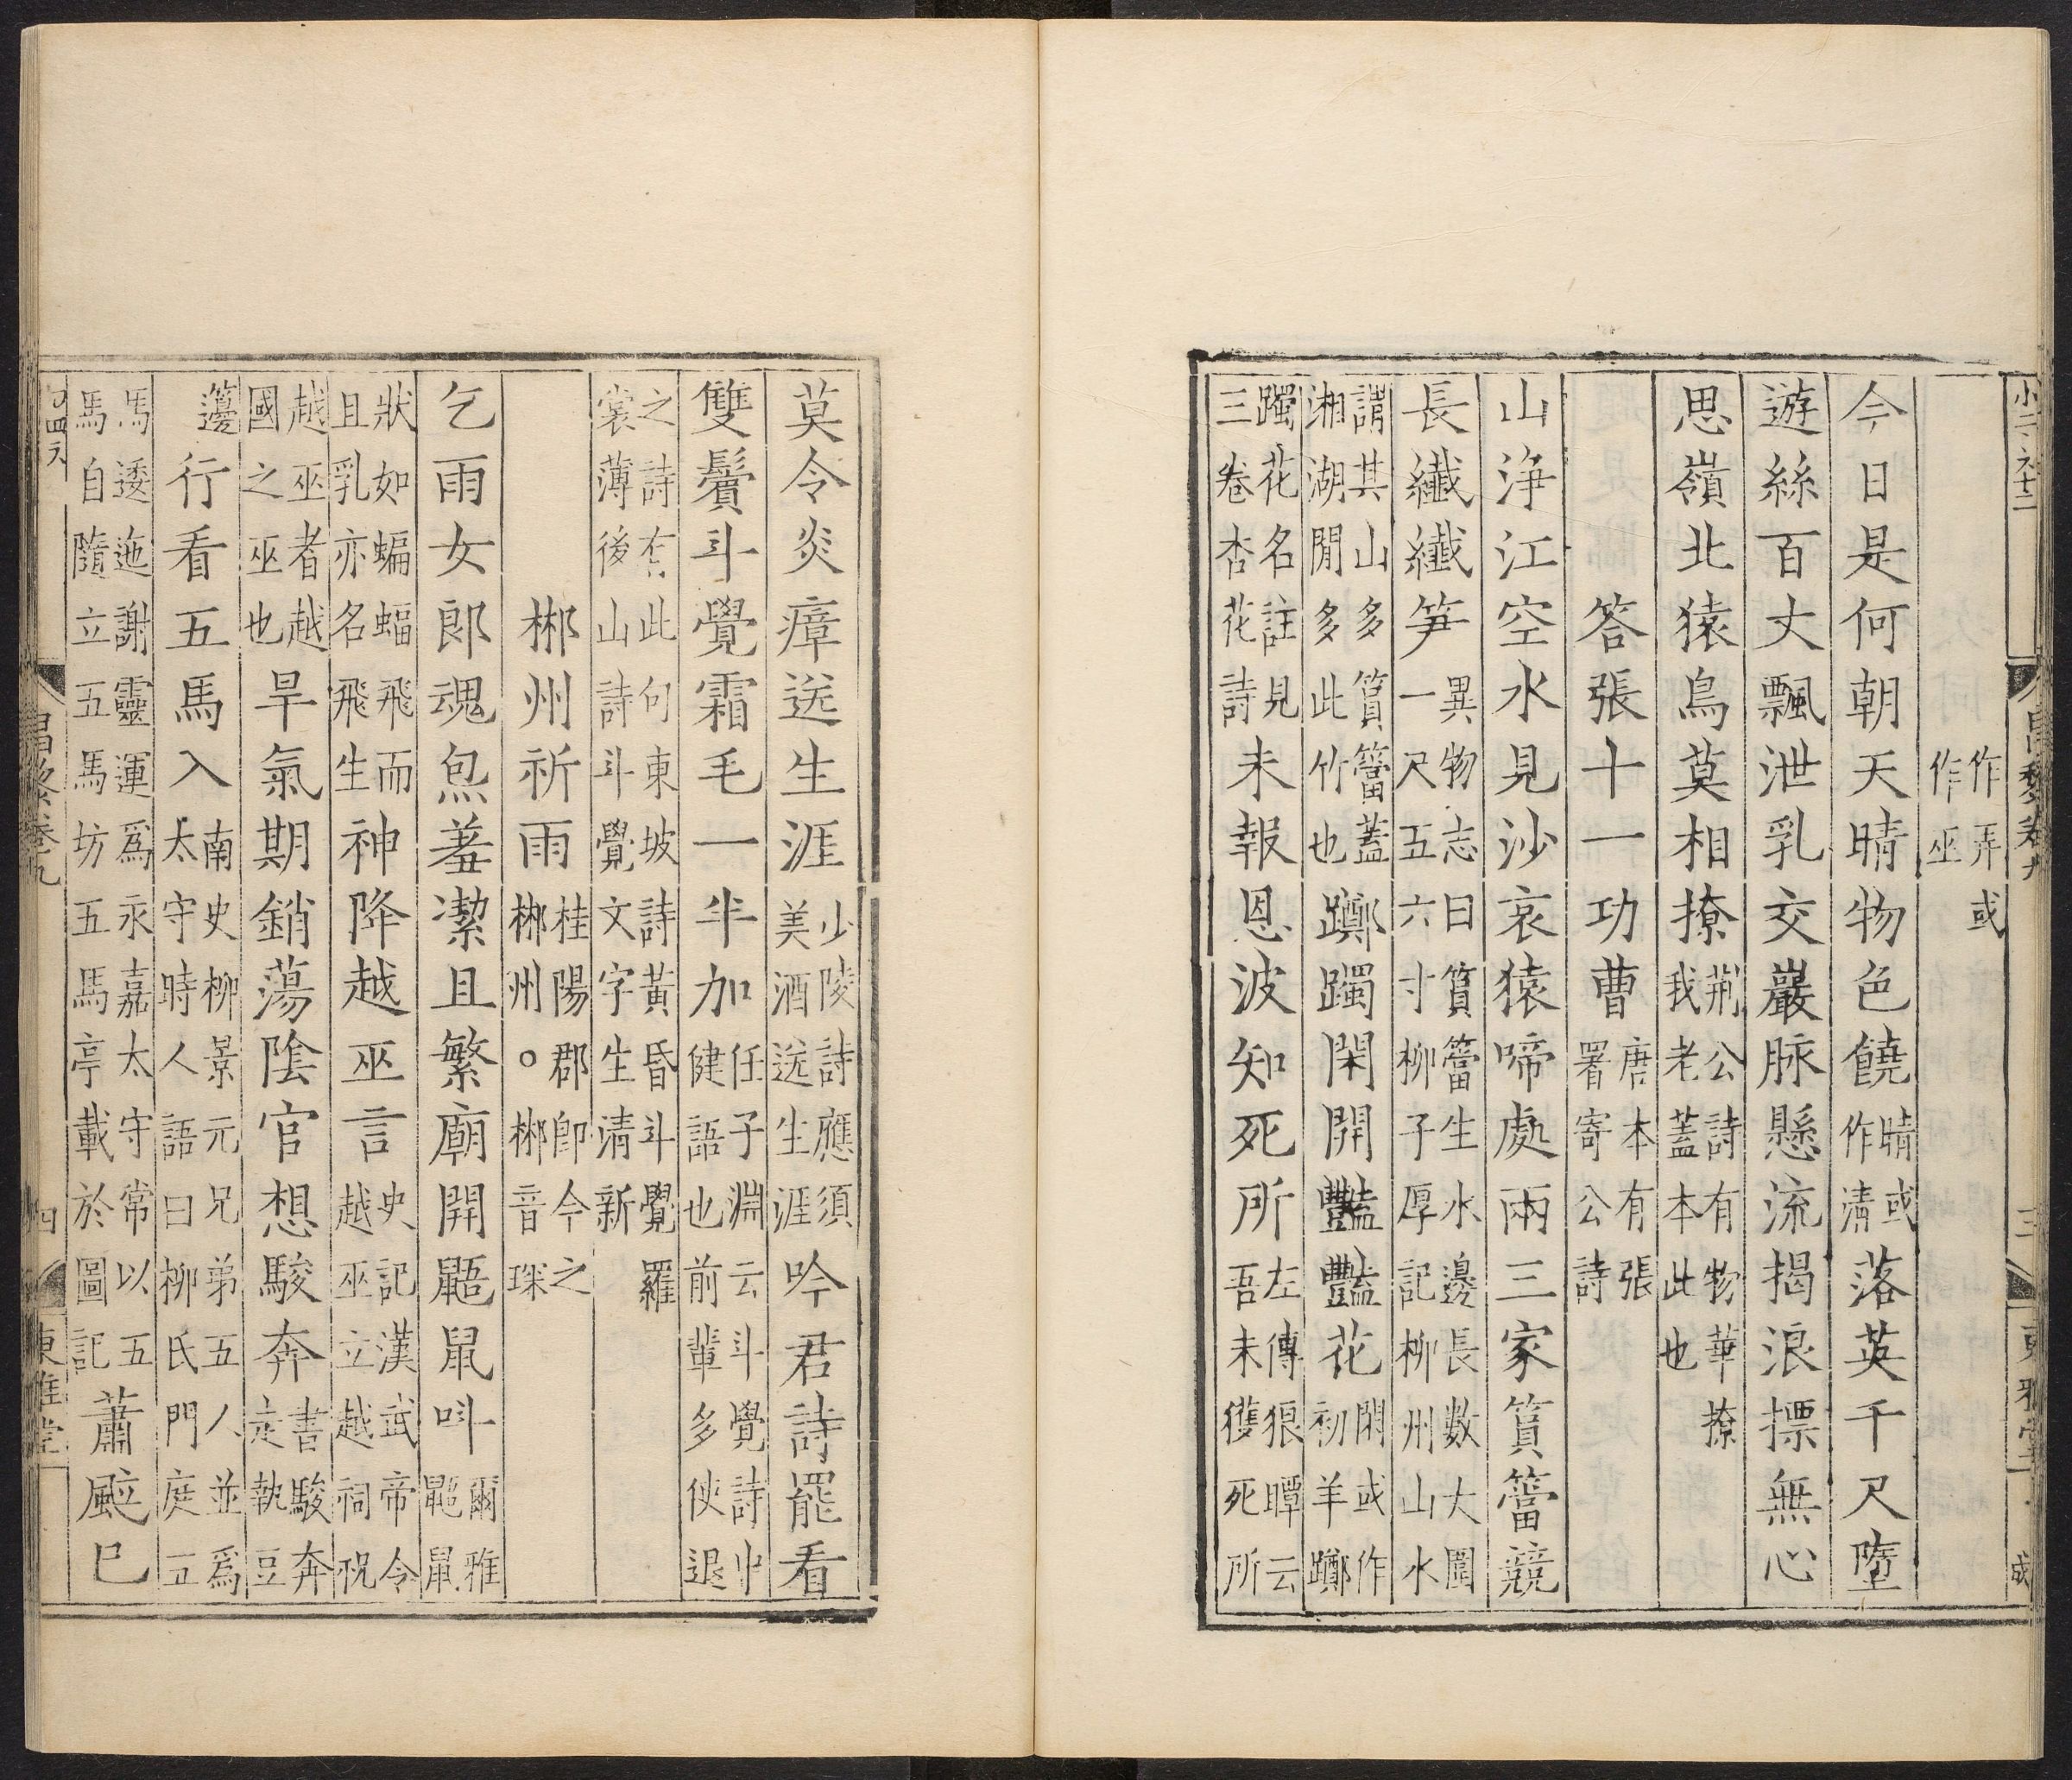 昌黎卷九
三
東雅堂
成
作弄或
作巫
今日是何朝天晴物色饒
晴或
作清
落英千尺墮
遊絲百丈飄泄乳交巖脉懸流揭浪摽無心
思嶺北猿鳥莫相撩
荆公詩有物華撩
我老蓋本此也
答張十一功曹
唐本有張
署寄公詩
山浄江空水見沙哀猿啼處兩三家篔簹競
長纎纎笋
異物志曰篔簹生水邊長數大圍
一尺五六寸柳子厚記柳州山水
謂其山多篔簹蓋
湘湖閒多此竹也
躑躅閑開豔豔花
閑或作
初羊躑
躅花名註見
三卷杏花詩
未報恩波知死所
左傳狼瞫云
吾未獲死所
莫令炎瘴送生涯
少陵詩應須
美酒送生涯
吟君詩罷看
雙鬢斗覺霜毛一半加
任子淵云斗覺詩中
健語也前輩多使退
之詩有此句東坡詩黃昏斗覺羅
裳薄後山詩斗覺文字生清新
郴州祈雨
桂陽郡即今之
郴州。郴音琛
乞雨女郎魂炰羞潔且繁廟開鼯鼠叫
爾雅
鼯鼠
狀如蝙蝠飛而
且乳亦名飛生
神降越巫言
史記漢武帝令
越巫立越祠祝
越巫者越
國之巫也
旱氣期銷蕩陰官想駿奔
書駿奔
走執豆
籩
行看五馬入
南史柳景元兄弟五人並爲
太守時人語曰柳氏門庭五
馬逶迤謝靈運爲永嘉太守常以五
馬自隨立五馬坊五馬亭載於圖記
蕭颯已
昌黎卷九
四
東雅堂